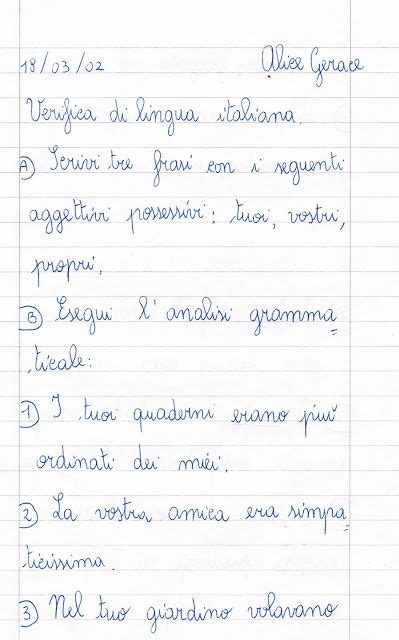 18/03/02 Alice Gerace
Verifica di lingua italiana.
A) Scrivi tre frasi con i seguenti
aggettivi possessivi: tuoi, vostri,
propri.
B) Esegui l'analisi gramma=
ticale:
1) I tuoi quaderni erano più
ordinati dei miei.
2) La vostra amica era simpa=
ticissima.
3) Nel tuo giardino volavano